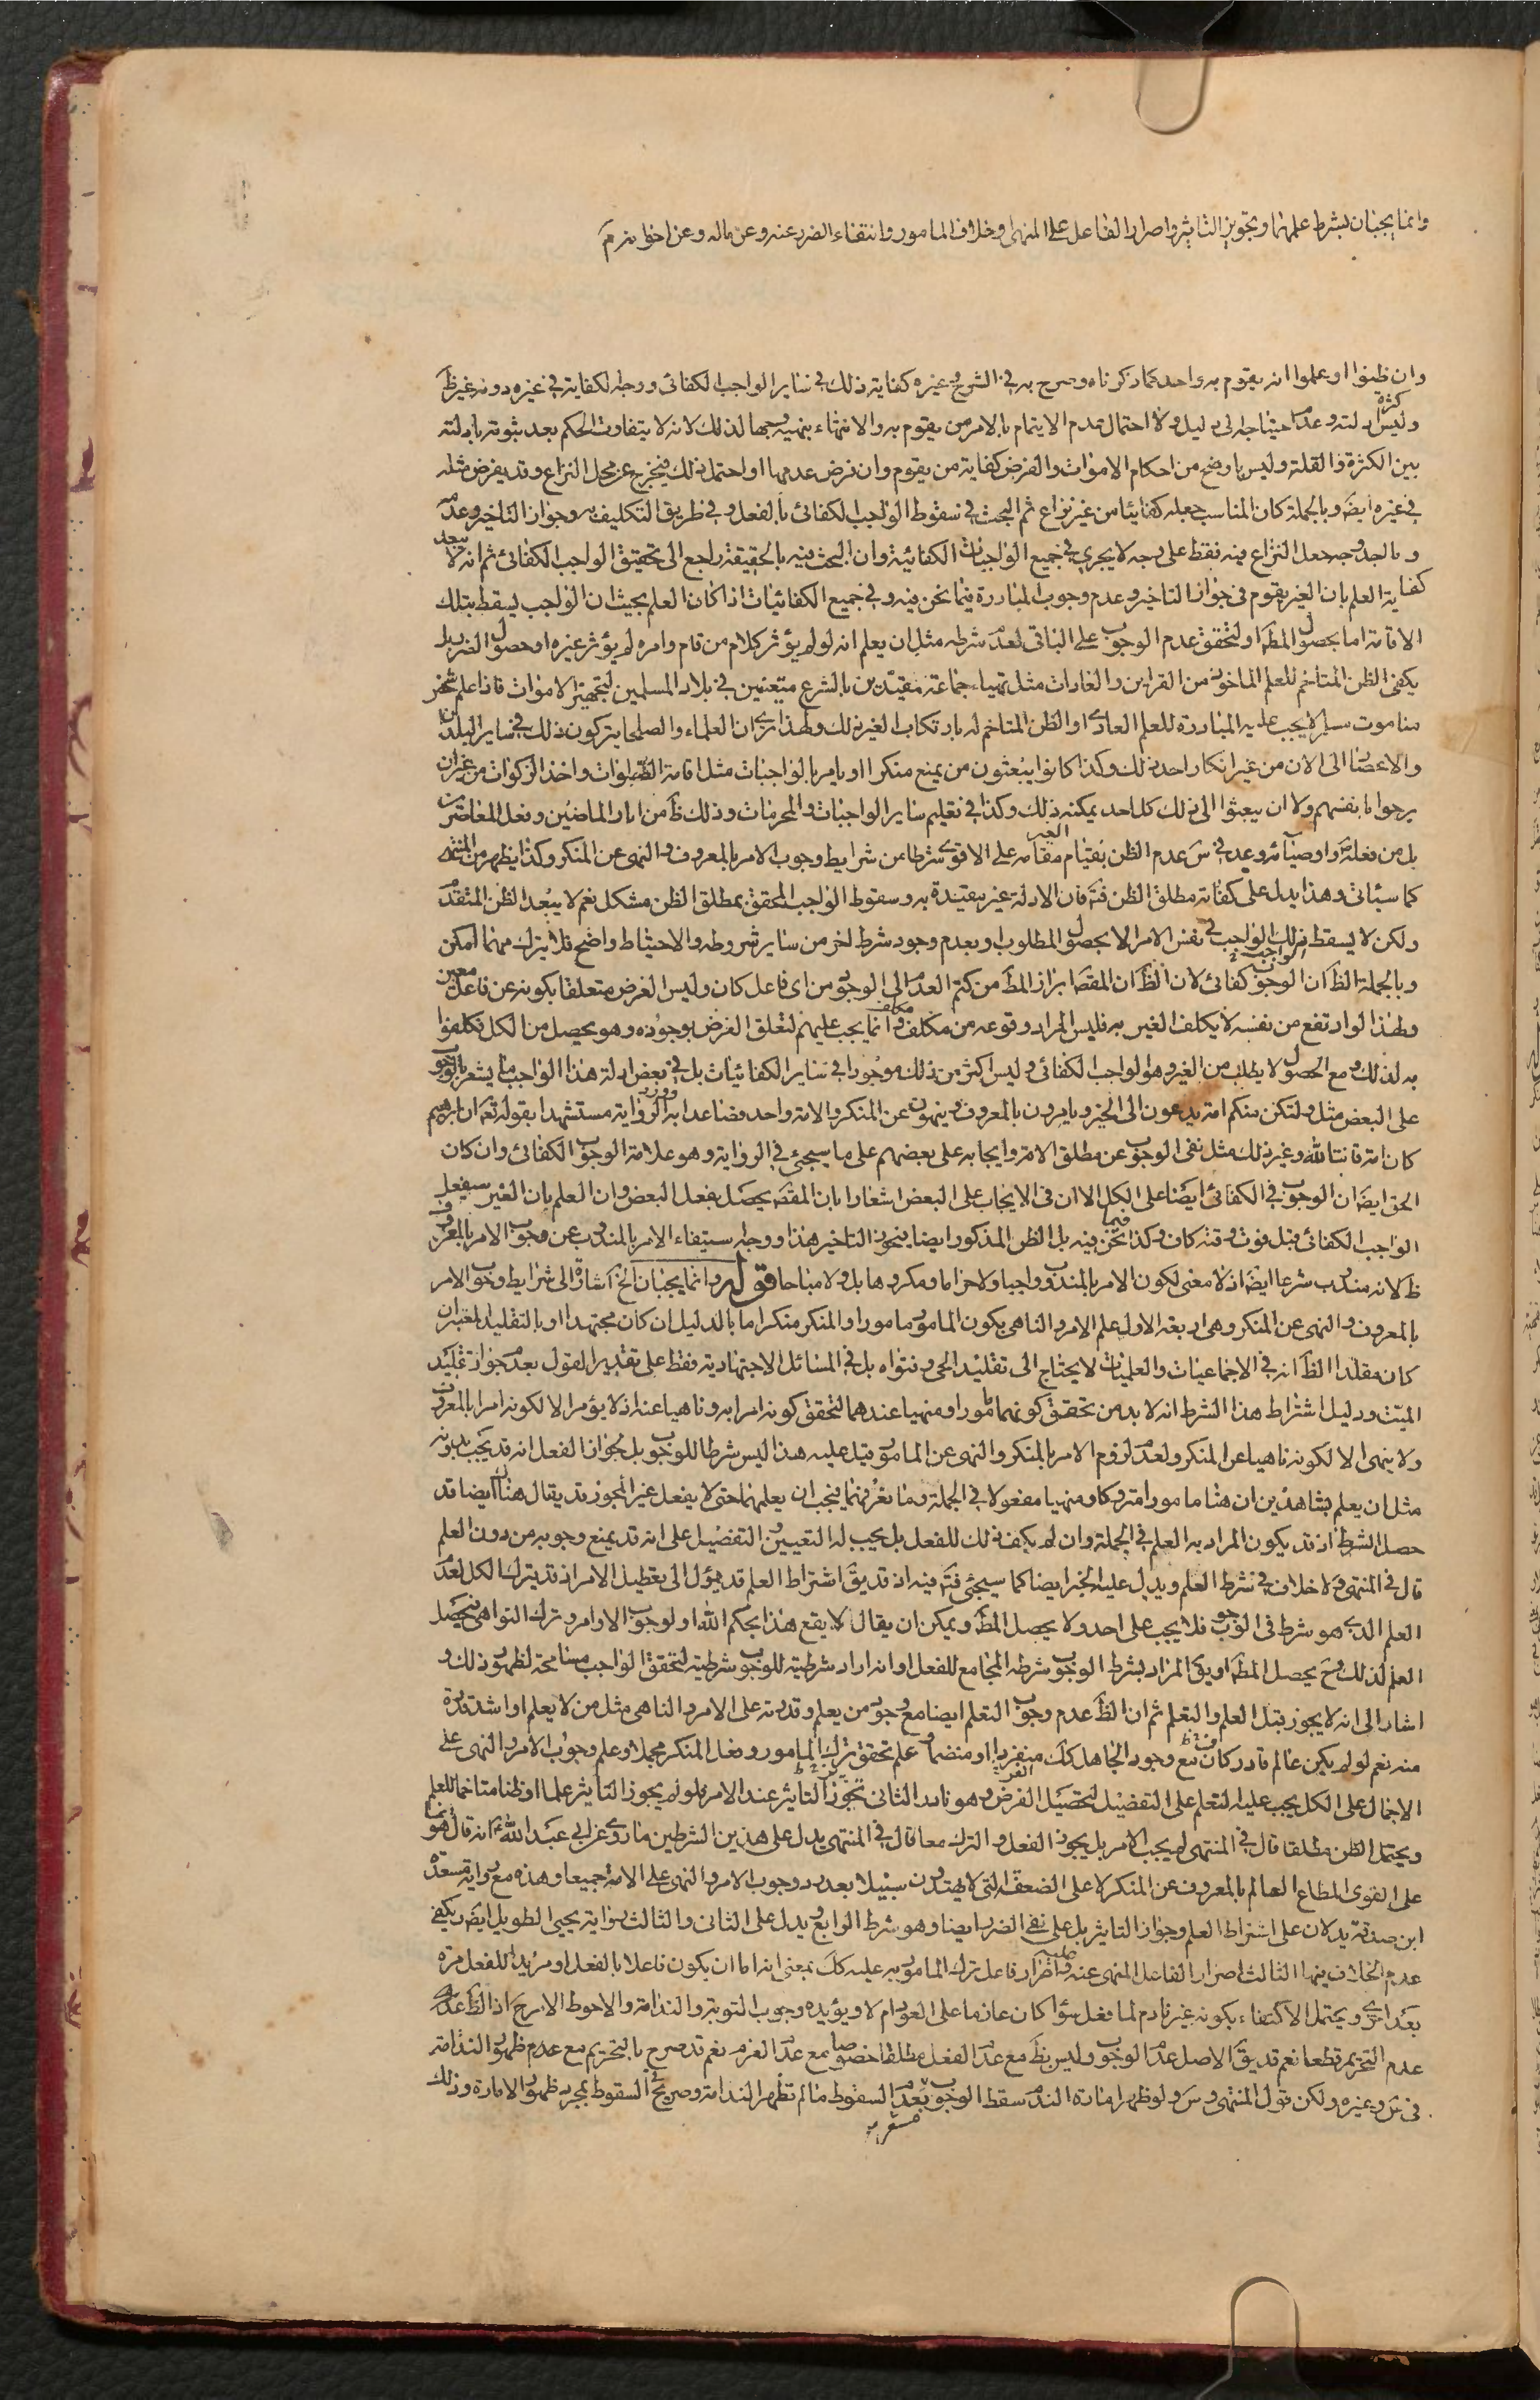 وانما يجبان بشرط علمهما وتجويز التاثير واصرار الفاعل على المنهى وخلاف المامور وانتفاء الضرر عنه وعن ماله وعن اخوانه
وان ظنوا او علموا انه يقوم به واحد كما ذكرناه وصرح به في الشرح وغيره كفاية ذلك في ساير الواجب الكفائى ووجه الكفاية في غيره دونه غير ظ
كثرة
وليس دلته وعدم احتياجه الى دليل ولا احتمال عدم الايتمام بالامر من يقوم به والانتهاء بنهيه لذلك لانه لا يتفاوت الحكم بعد ثبوته بادلته
بين الكثرة والقلة وليس باوضح من احكام الاموات والفرض كفاية من يقوم وان فرض عدمها او احتمل ذلك فيخرج عن محل النزاع وقد يفرض مثله
في غيره ايضَ وبالجملة كان المناسب جعله كفائيا من غير نزاع ثم البحث في سقوط الواجب الكفائى بالفعل وفي طريق التكليف به وجواز التاخير وعدمه
جعل النزاع فيه فقط على وجه لا يجرى في جميع الواجبات الكفائية وان البحث فيه بالحقيقة راجع الى تحقيق الواجب الكفائى ثم انه لا يبعد
كفاية العلم بان الغير يقوم فى جواز التاخير وعدم وجوب المبادرة فيما نحن فيه وفي جميع الكفائيات اذا كان العلم بحيث ان الواجب يسقط بتلك
الاقامة اما بحصول المطَ او لتحقق عدم الوجوب على الباقى لعدم شرطه مثل ان يعلم انه لو لم يؤثر كلام من قام وامره لم يؤثر غيره او حصول الضرر بل
يكفى الظن المتاخم للعلم الماخوذ من القراين والعادات مثل تهياء جماعة مقيدين بالشرع متعينين في بلاد المسلمين لتجهيز الاموات فاذا علم شخص
منا موت مسلم لا يجب عليه المبادرة للعلم العادى او الظن المتاخم له بارتكاب الغير ذلك ولهذا نرى ان العلماء والصلحا يتركون ذلك في ساير البلدان
والاعصار الى الان من غير انكار احد ذلك وكذا كانوا يبعثون من يمنع منكرا او يامر بالواجبات مثل اقامة الصلوات واخذ الزكوات من غير ان
يرحوا بانفسهم ولا ان يبعثوا الى ذلك كل احد يمكنه ذلك وكذا في تعليم ساير الواجبات والمحرمات وذلك ظَ من اثار الماضين وفعل المعاصرين
بل من فعله واوصيائه وعد في سَ عدم الظن بقيام الغير مقامه على الاقوى شرطا من شرايط وجوب الامر بالمعروف والنهى عن المنكر وكذا يظهر من المنتهى
كما سيأتى وهذا يدل على كفاية مطلق الظن فتَ فان الادلة غير مقيدة به وسقوط الواجب المحقق بمطلق الظن مشكل نعم لا يبعد الظن المتقدم
ولكن لا يسقط بذلك الواجب في نفس الامر الا بحصول المطلوب او بعدم وجود شرط اخر من ساير شروطه والاحتياط واضح فلا يترك مهما امكن
وبالجملة الظَ ان الوجوب كفائى لان الظَ ان المقصَ ابراز المطَ من كتم العدم الى الوجود من اى فاعل كان وليس الغرض متعلقا بكونه عن فاعل معين
ولهذا لو ارتفع من نفسه لا يكلف الغير به فليس المراد وقوعه من مكلف مكلف وانما يجب عليهم لتعلق الغرض بوجوده وهو يحصل من الكل فكلفوا
به لذلك ومع الحصول لا يطلب من الغير وهو الواجب الكفائى وليس اكثر من ذلك موجودا في ساير الكفائيات بل في بعض ادلة هذا الواجب ما يشعر بالوجوب
على البعض مثل ولتكن منكم امة يدعون الى الخير ويامرون بالمعروف وينهون عن المنكر والامة واحد فصاعدا به الرواية مستشهدا بقوله تعَ ان ابرهيم
كان امة قانتا لله وغير ذلك مثل نفى الوجوب عن مطلق الامة وايجابه على بعضهم على ما سيجئ في الرواية وهو علامة الوجوب الكفائى وان كان
الحق ايضَ ان الوجوب في الكفائى ايضَا على الكل الا ان فى الايجاب على البعض اشعارا بان المقصَ يحصل بفعل البعض وان العلم بان الغير سيفعل
الواجب الكفائى قبل فوت وقته كاف وكذا فيما نحن فيه بل الظن المذكور ايضا فيجوز التاخير هذا ووجه استيفاء الامر بالمندوب عن وجوب الامر بالمعروف
ظَ لانه مندوب شرعا ايضَ اذ لا معنى لكون الامر بالمندوب واجبا ولا حراما ومكروها بل ولا مباحا قوله وانما يجبان الخ اشارة الى شرايط وجوب الامر
بالمعروف والنهى عن المنكر وهى اربعة الاول علم الامر والناهى بكون المامور مامورا والمنكر منكرا اما بالدليل ان كان مجتهدا او بالتقليد المعتبر ان
كان مقلدا الظَ انه في الاجماعيات والعلميات لا يحتاج الى تقليد الحى وفتواه بل في المسائل الاجتهادية فقط على تقدير القول بعدم جواز تقليد
الميت ودليل اشتراط هذا الشرط انه لا بد من تحقق كونهما مامورا ومنهيا عندهما لتحقق كونه امرا به وناهيا عنه اذ لا يؤمر الا لكونه امرا بالمعروف
ولا ينهى الا لكونه ناهيا عن المنكر ولعدم لزوم الامر بالمنكر والنهى عن المامور قيل عليه هذا ليس شرطا للوجوب بل لجواز الفعل انه قد يجب بدونه
مثل ان يعلم بشاهدين ان هنا مامورا متروكا ومنهيا مفعولا في الجملة وما يعرفهما فيجب ان يعلمهما حتى لا يفعل غير المجوز قد يقال هنا ايضا قد
حصل الشرط اذ قد يكون المراد به العلم في الجملة وان لم يكف ذلك للفعل بل يجب له التعيين والتفصيل على انه قد يمنع وجوبه من دون العلم
قال في المنتهى ولا خلاف في شرط العلم ويدل عليه الخبر ايضا كما سيجئ فتَ فيه اذ قد يقَ اشتراط العلم قد يؤل الى تعطيل الامر اذ قد يترك الكل لعدم
العلم الذى هو شرط في الوجوب فلا يجب على احد ولا يحصل المطَ ويمكن ان يقال لا يقع هذا بحكم الله او لوجوب الاوامر وترك النواهى فيحصل
العلم لذلك وحَ يحصل المطَ او يقَ المراد بشرط الوجوب شرطه المجامع للفعل او انه اراد شرطيته للوجوب شرطيته لتحقق الواجب مسامحة لظهور ذلك و
اشار الى انه لا يجوز قبل العلم والتعلم ثم ان الظَ عدم وجوب التعلم ايضا مع وجود من يعلم وقدرته على الامر والناهى مثل من لا يعلم او اشد قدرة
منه نعم لو لم يكن عالم قادر كاف مع وجود الجاهل كذلك منفردا او منضما وعلم تحقق ترك المامور وفعل المنكر مجملا وعلم وجوب الامر والنهى على
الاجمال على الكل يجب عليه التعلم على التفصيل لتحصيل الفرض وهو نادر الثانى تجوز التاثير عند الامر فلو لم يجوز التاثير علما او ظنا متاخما للعلم
ويحتمل الظن مطلقا قال في المنتهى لم يجب الامر بل يجوز الفعل والترك معا قال في المنتهى يدل على هذين الشرطين ما روى عن ابى عبد الله عَ انه قال انما هو
على القوى المطاع العالم بالمعروف عن المنكر لا على الضعفة التى لا يهتدون سبيلا بعد رد وجوب الامر والنهى على الامة جميعا وهذه مع رواية مسعدة
ابن صدقة يدلان على اشتراط العلم وجواز التاثير بل على نفى الضرر ايضا وهو شرط الرابع ويدل على الثانى والثالث رواية يحيى الطويل ايضَ ويكفى
عدم الخلاف فيها الثالث اصرار الفاعل المنهى عنه عليه واصرار فاعل ترك المامور به عليه كذلك بمعنى انه اما ان يكون فاعلا بالفعل او مريدا للفعل مرة
بعد اخرى ويحتمل الاكتفاء بكونه غير نادم لما فعل سواء كان عازما على العود ام لا ويؤيده وجوب التوبة والندامة والاحوط الارجح اذ الظَ عدم
عدم التحريم قطعا نعم قد يقَ الاصل عدم الوجوب وليس بظَ مع عدم الفعل مطلقا خصوصا مع عدم العزم نعم قد صرح بالتحريم مع عدم ظهور الندامة
فى سَ وغيره ولكن قول المنتهى وسَ ولو ظهر امارة الندم سقط الوجوب بعدم السقوط ما لم تظهر الندامة وصريح السقوط بمجرد ظهور الامارة وذلك
مشعر